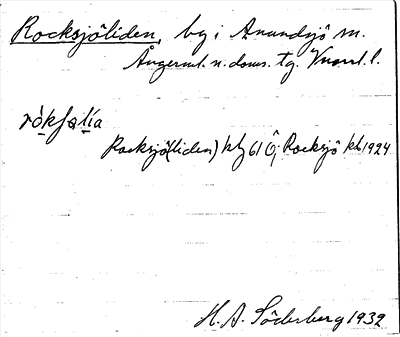 Rocksjöliden, by i Anundsjö sn.
Ångerml. n. doms. tg. Vnorrl. l.
róksəlía
Rocksjö(liden) kbg 61 Ö; Rocksjö kk 1924
H. A. Söderberg 1932